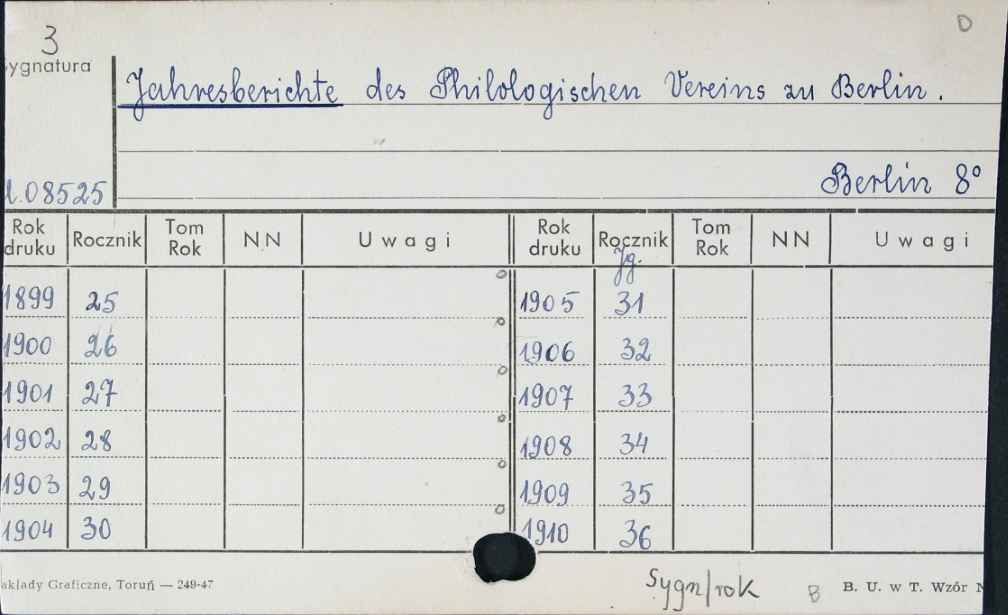 3
D
ygnatura
Jahresberichte des Philologischen Vereins zu Berlin.
08525
Berlin 8°
Rok druku Rocznik Tom Rok NN Uwagi Rok druku Rocznik Tom Rok NN Uwagi
Jg.
1899 25 1905 31
1900 26 1906 32
1901 27 1907 33
1902 28 1908 34
1903 29 1909 35
1904 30 1910 36
akłady Graficzne, Toruń — 249-47
Sygn/rok
B
B. U. w T. Wzór